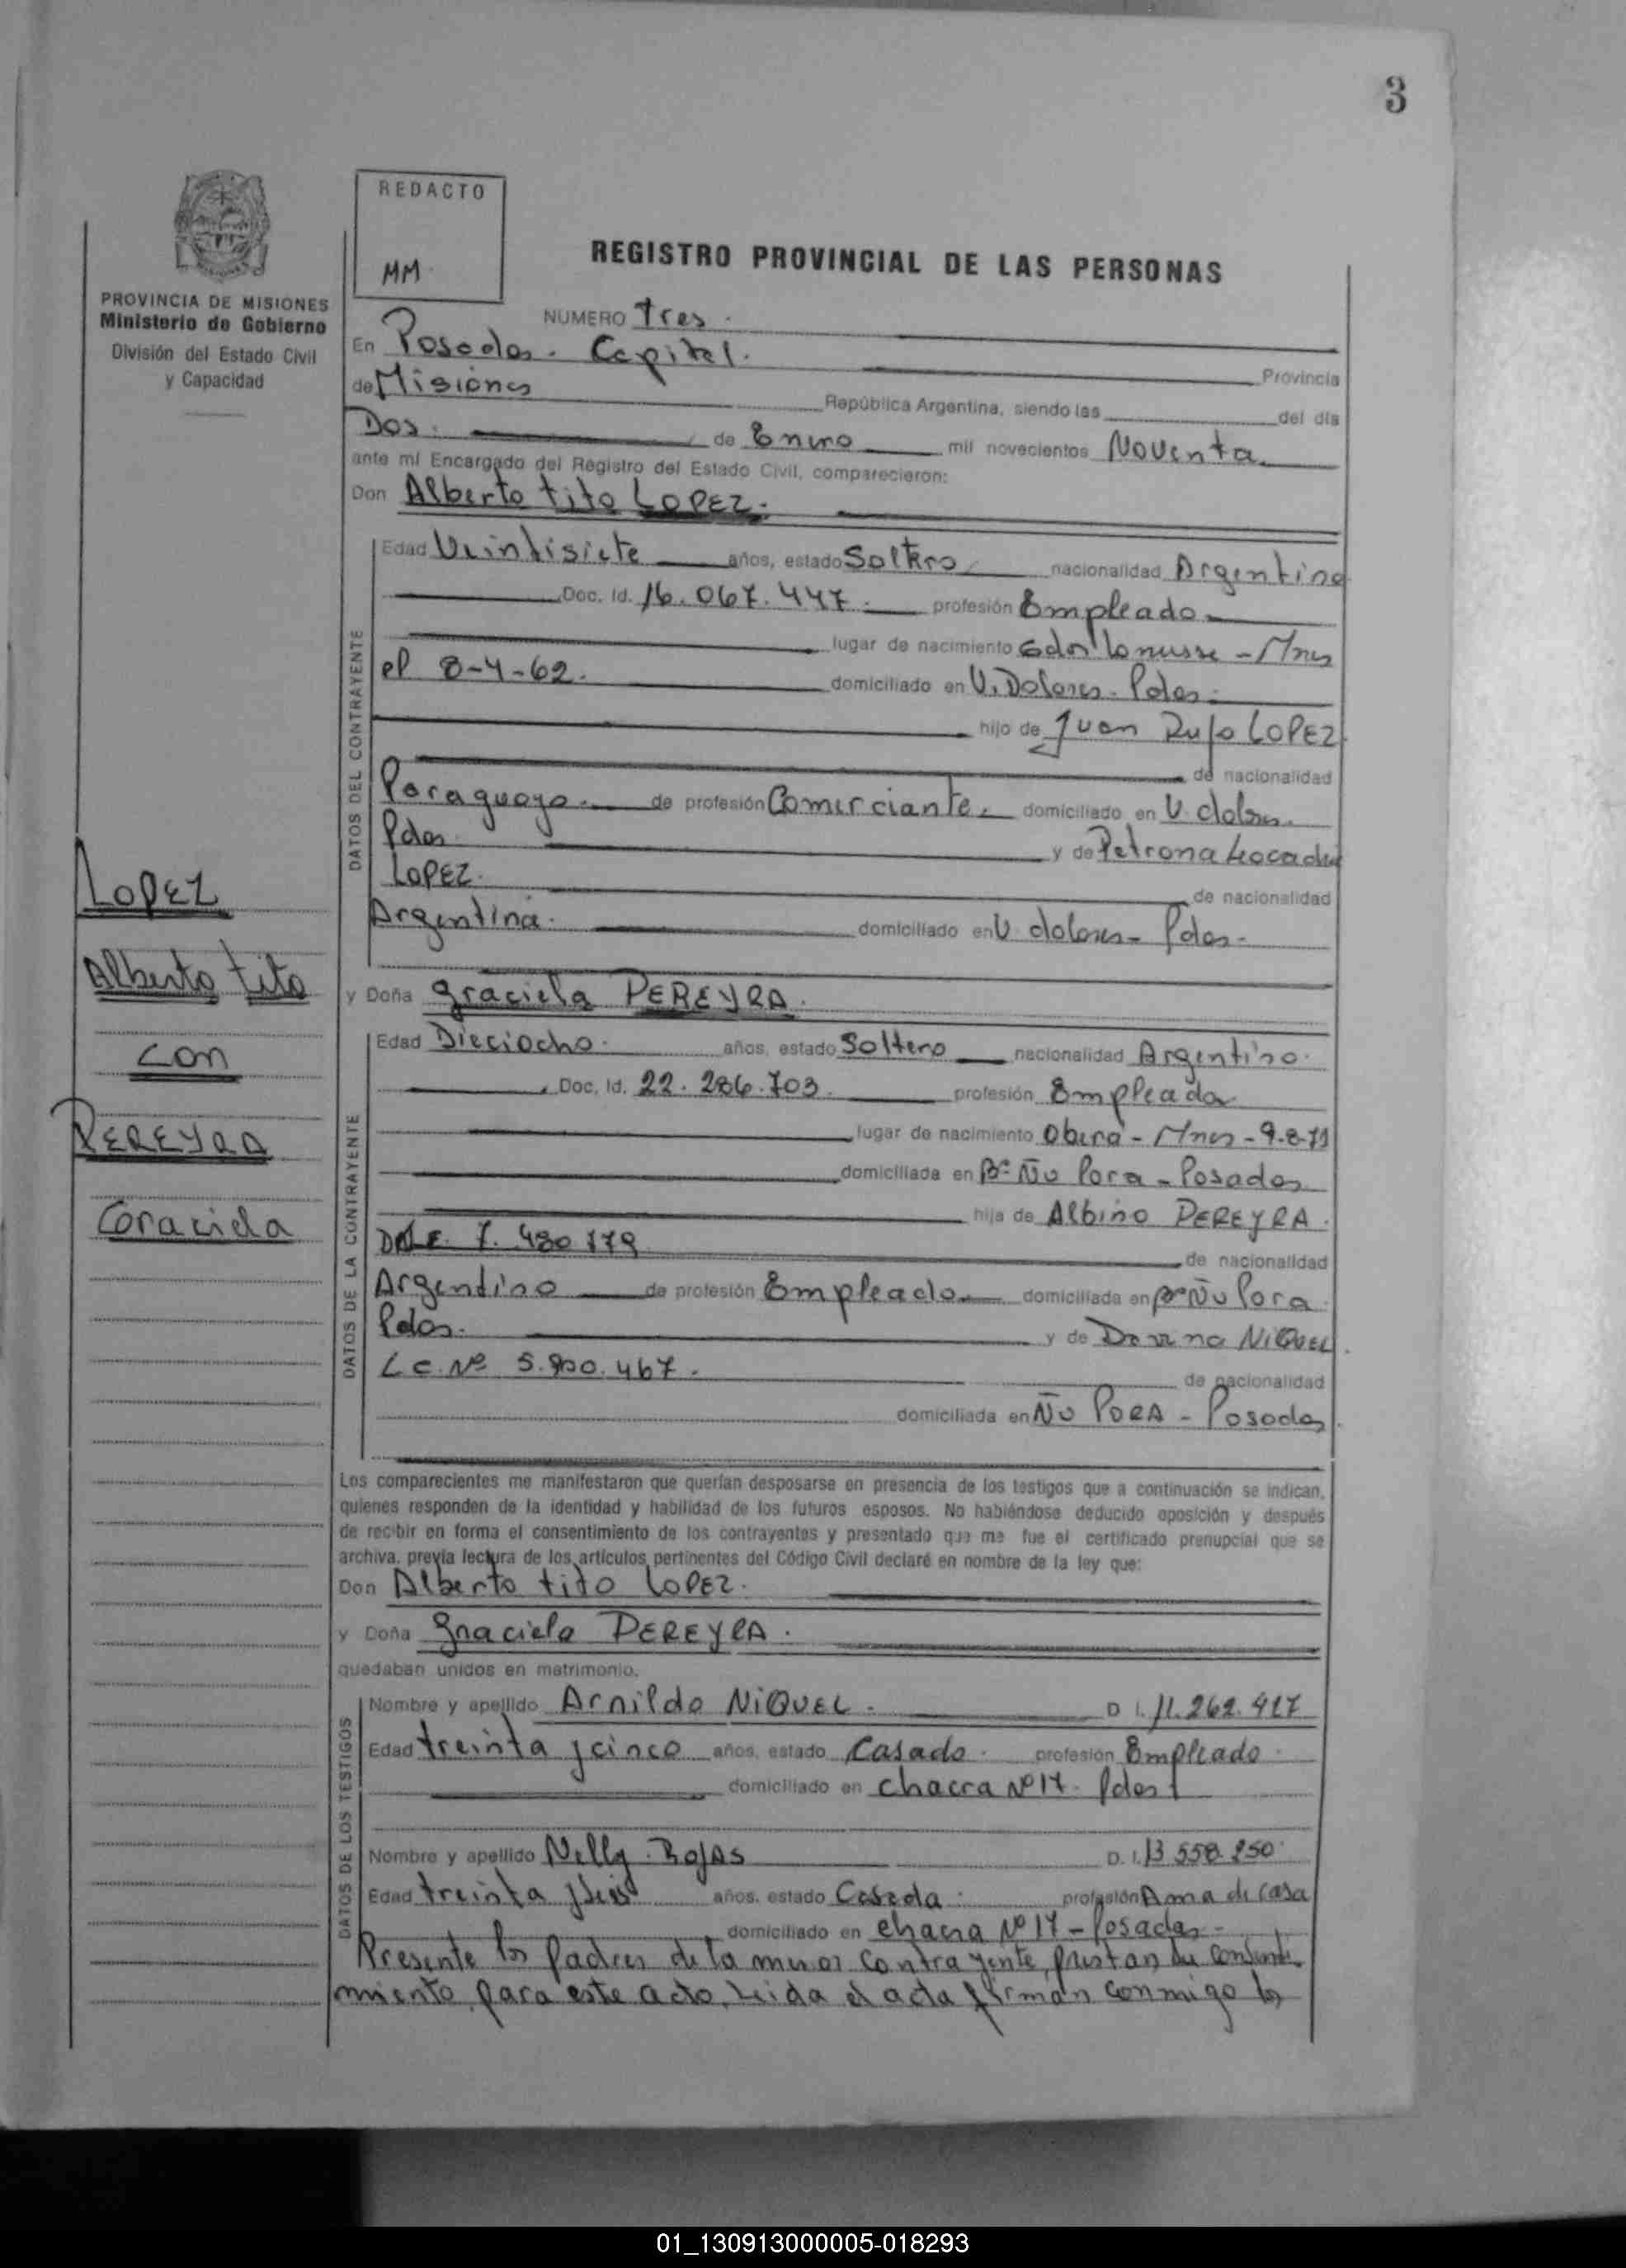 3
REDACTO
MM
REGISTRO PROVINCIAL DE LAS PERSONAS
PROVINCIA DE MISIONES
Ministerio de Gobierno
División del Estado Civil
y Capacidad
NUMERO tres.
En Posadas. Capital. Provincia
de Misiones República Argentina, siendo las del día
Dos. de Enero mil novecientos Noventa
ante mí Encargado del Registro del Estado Civil, comparecieron:
Don Alberto tito LOPEZ.
DATOS DEL CONTRAYENTE
Edad Veintisiete años, estado Soltero nacionalidad Argentino
Doc. Id. 16.067.447. profesión Empleado
lugar de nacimiento Gdor Lanusse - Mnes
el 8-4-62. domiciliado en V. Dolores. Pdas.
hijo de Juan Rufo LOPEZ
de nacionalidad
Paraguayo. de profesión Comerciante. domiciliado en V. dolores.
Pdas. y de Petrona Leocadia
LOPEZ. de nacionalidad
Argentina. domiciliado en V. dolores - Pdas.
y Doña Graciela PEREYRA.
DATOS DE LA CONTRAYENTE
Edad Dieciocho. años, estado Soltera nacionalidad Argentina.
Doc. Id. 22.286.703. profesión Empleada
lugar de nacimiento Oberá - Mnes - 9-8-71
domiciliada en Bº Ñu Pora - Posadas
hija de Albino PEREYRA.
7.480.179 de nacionalidad
Argentino de profesión Empleado domiciliada en Bº Ñu Pora.
Pdas. y de NiQUEL.
L.C. Nº 5.900.467. de nacionalidad
domiciliada en Ñu PORA - Posadas.
Los comparecientes me manifestaron que querían desposarse en presencia de los testigos que a continuación se indican,
quienes responden de la identidad y habilidad de los futuros esposos. No habiéndose deducido oposición y después
de recibir en forma el consentimiento de los contrayentes y presentado que me fue el certificado prenupcial que se
archiva, previa lectura de los artículos pertinentes del Código Civil declaré en nombre de la ley que:
Don Alberto tito LOPEZ.
y Doña Graciela PEREYRA.
quedaban unidos en matrimonio.
DATOS DE LOS TESTIGOS
Nombre y apellido Arnildo NiQUEL. D. I. 11.262.417
Edad treinta y cinco años, estado Casado. profesión Empleado.
domiciliado en chacra Nº 17. Pdas
Nombre y apellido Nelly Rojas D. I. 13.558.250.
Edad treinta años, estado Casada. profesión Ama de casa
domiciliado en chacra Nº 17 - Posadas -
Presente los padres de la menor contrayente, prestan su consenti-
miento para este acto. Leida el acta firman conmigo los
LOPEZ
Alberto tito
con
PEREYRA
Graciela
01_130913000005-018293